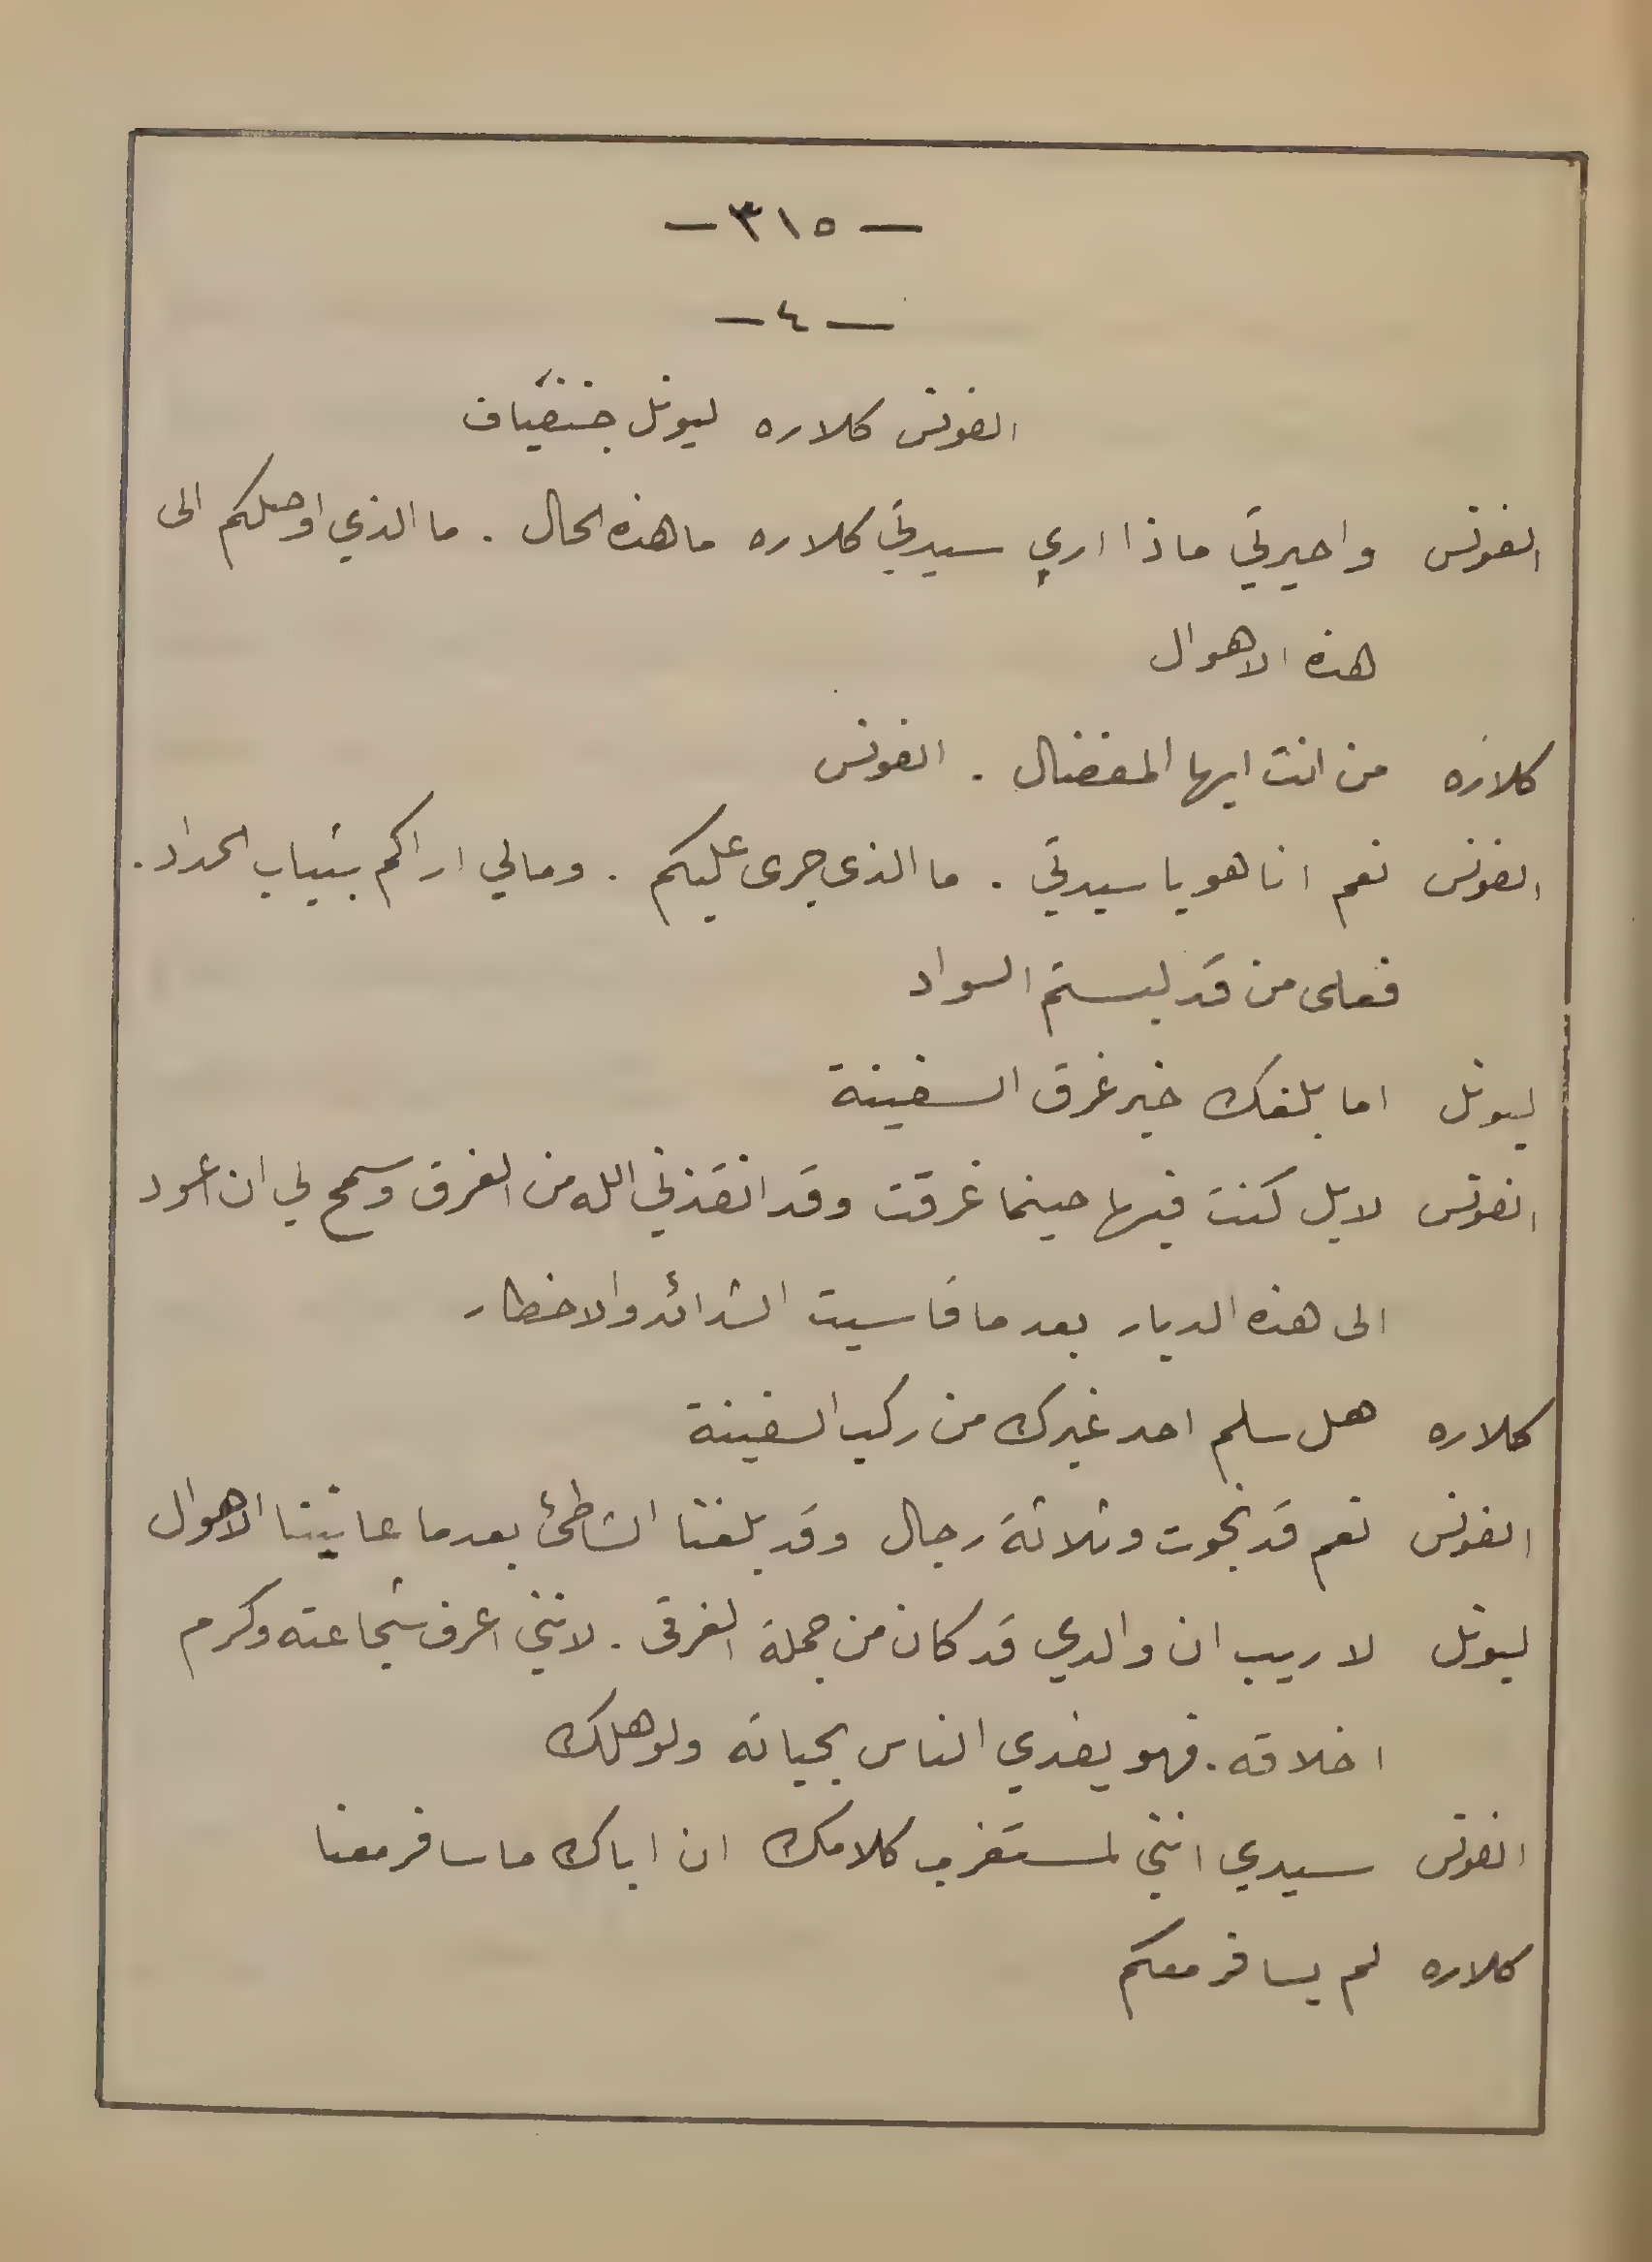 — ٣١٥ —
— ٤ —
الفونس كلاره ليونل جنفياف
الفونس واحيرتي ماذا اري سيدتي كلاره ما هذه الحال . ما الذي اوصلكم الى
هذه الاهوال
كلاره من انت ايها المفضال . الفونس
الفونس نعم انا هو يا سيدتي . ما الذي جرى عليكم . ومالي اراكم بثياب الحداد .
فعلى من قد لبستم السواد
ليونل اما بلغك خبر غرق السفينة
الفونس لا بل كنت فيها حينما غرقت وقد انقذني الله من الغرق وسمح لي ان اعود
الى هذه الديار بعد ما قاسيت الشدائد والاخطار
كلاره هل سلم احد غيرك من ركب السفينة
الفونس نعم قد نجوت وثلاثة رجال وقد بلغنا الشاطئ بعدما عانينا الاهوال
ليونل لا ريب ان والدي قد كان من جملة الغرقى . لانني اعرف شجاعته وكرم
اخلاقه . فهو يفدي الناس بحياته ولو هلك
الفونس سيدي انني لمستغرب كلامك ان اباك ما سافر معنا
كلاره لم يسافر معكم